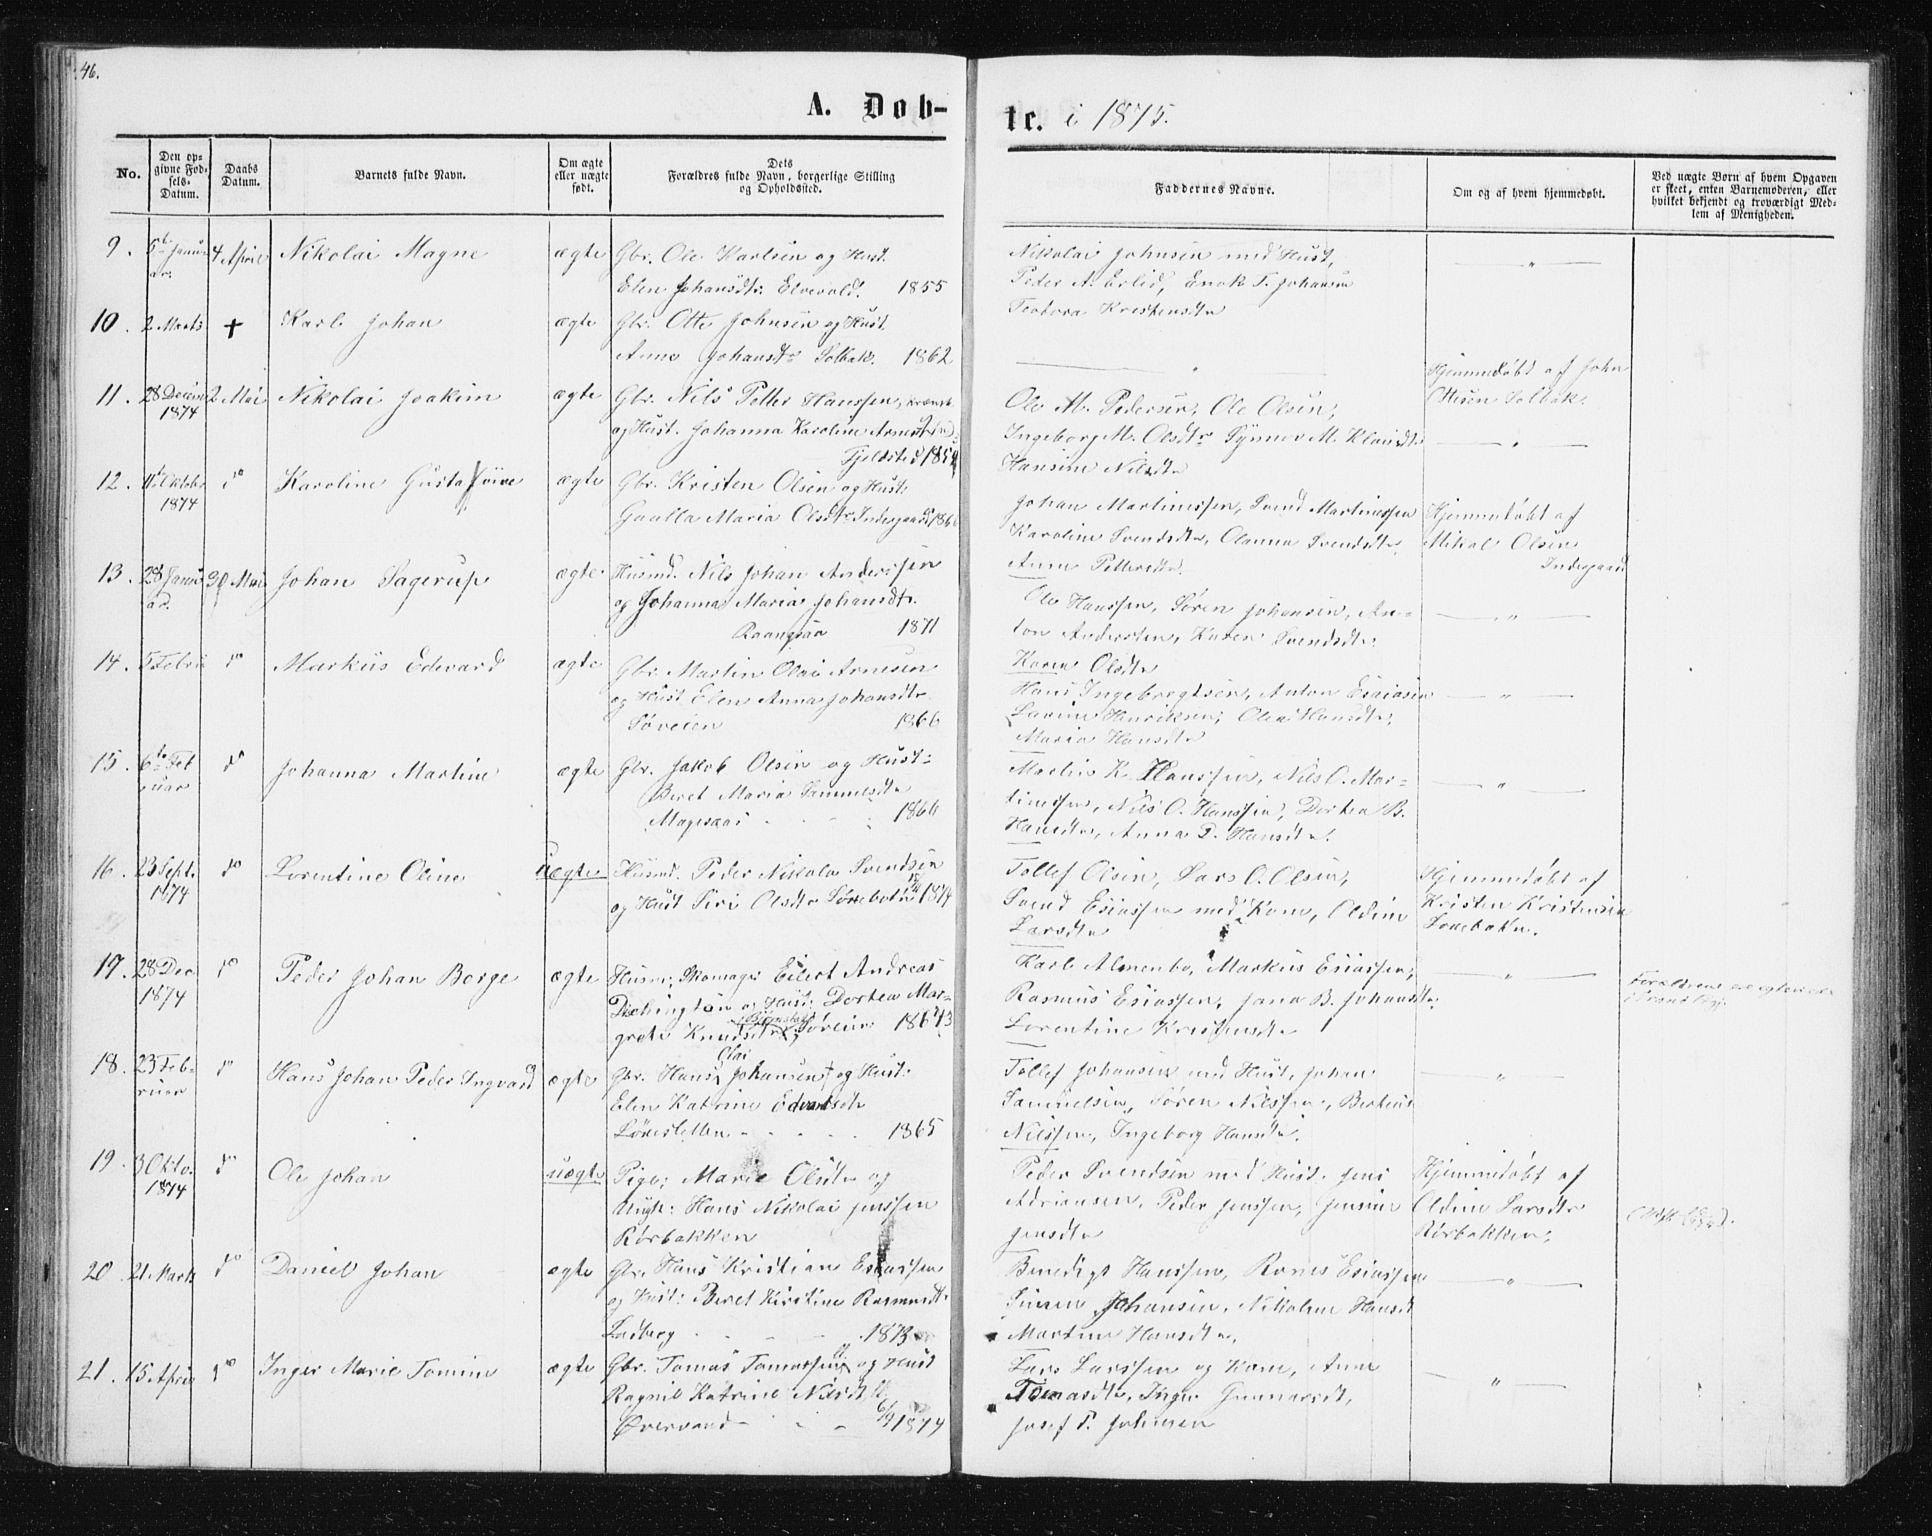 46.
A. Døb-
te. i 1875.
No.
Den op-
givne Fød-
sels-
Datum.
Daabs
Datum.
Barnets fulde Navn.
Om ægte
eller uægte
født.
Dets
Forældres fulde Navn, borgerlige Stilling
og Opholdssted.
Faddernes Navne.
Om og af hvem hjemmedøbt.
Ved uægte Børn af hvem Opgaven
er skeet, enten Barnemoderen, eller
hvilket bekjendt og troværdigt Med-
lem af Menigheden.
9. 5te Janu- 4 April Nikolai Magne ægte Gbr. Ole Karlsen og Hust.
ar. Elen Johansdtr. Elvevold. 1855
Nikolai Johnsen med Hust,
Peder A. Erlid, Enok T. Johansen
Teodora Kristensdtr
10. 2 Marts + Karl Johan ægte Gbr. Otte Johnsen og Hust.
Anne Johansdtr Solbak. 1862
Hjemmedøbt af John
Ottesen Solbak.
11. 28 Decem 2 Mai Nikolai Joakim ægte Gbr. Nils Petter Hanssen,
1874 og Hust. Johanna Karoline Arnesdtr
Fjeldstad
Ole M. Pedersen, Ole Olsen,
Ingeborg M. Olsdtr Synnøv M. Klausdtr
Hansine Nilsdtr
12. 11te Oktobr do Karoline Gusta ægte Gbr. Kristen Olsen og Hust:
1874 Gunlla Maria Olsdtr Indregaard
Johan Martinussen, Svend Martinussen
Karoline Svendsdtr, Olanna Svendsdtr
Anne Pettersdtr.
Hjemmedøbt af
Mikal Olsen
Indregaard
13. 28 Janu 30 Mai Johan Sagerup ægte Husmd. Nils Johan Anderssen
ar. og Johanna Maria Johansdtr.
1871
Ole Hanssen, Søren Johansen, An-
ton Anderssen, Karen Svendsdtr.
Karen Olsdtr
14. 5 Febru do Markus Edvard ægte Gbr. Martin Olai Arnesen
og Hust Elen Anna Johansdtr.
Søveien 1866
Hans Ingebregtsen, Anton Esaiasen
Lavine Henriksen, Olea Hansdtr,
Maria Hansdtr
15. 6te Feb do Johanna Martine ægte Gbr. Jakob Olsen og Hust:
ruar Beret Maria Samuelsdtr
1866
Martin K. Hanssen, Nils O. Mar-
tinssen, Nils O. Hanssen, Dortea B.
Hansdtr, Anna D. Hansdtr.
16. 23 Sept. do Lorentine Oline uægte Husmd. Peder Nikolai Svendsen
1874 og Hust Siri Olsdtr Sørebotn 1874
Tollef Olsen, Lars O. Olsen,
Svend Esiassen med Kone, Oldine
Larsdtr
Hjemmedøbt af
Kristen Kristensen
Sørebotn.
17. 28 Dec do Peder Johan Borge ægte Husm. Skomager Eilert Andreas
1874 og Hust. Dortea Mar-
grete Knudsdtr Søreien
Karl Almenbo, Markus Esiassen,
Rasmus Esiassen, Jana B. Johansdtr.
Lorentine Kristensdtr
18. 23 Feb- do Hans Johan Peder Ingvard ægte Gbr. Hans Olai Johansen og Hust:
ruar Elen Katrine Edvardsdtr
1865
Tollef Johansen med Hust, Johan
Samuelsen, Søren Nilssen, Berteus
Nilssen, Ingeborg Hansdtr.
19. 3 Okto. do Ole Johan uægte Pige: Marie Olsdtr og
1874 Ungk: Hans Nikolai Jenssen
Rørbakken
Peder Svendsen med Hust. Jens
Adriansen, Peder Jenssen, Jensine
Jensdtr
Hjemmedøbt af
Oldine Larsdtr
Rørbakken.
20. 21 Marts do Daniel Johan ægte Gbr. Hans Kristian Esiassen
og Hust: Beret Kirstine Rasmusdtr.
1873
Benedigt Hanssen, Rones Esiassen
Simen Johansen, Nikoline Hansdt
Martine Hansdtr,
21. 15 April do Inger Marie Tomine ægte Gbr. Tomas Tomassen og Hust
Ragnil Katrine Nilsdt
Øvervand 1874
Lars Larssen og Kone, Anne
Tomasdtr, Inger Gunnarsdt,
Josef P. Johnsen